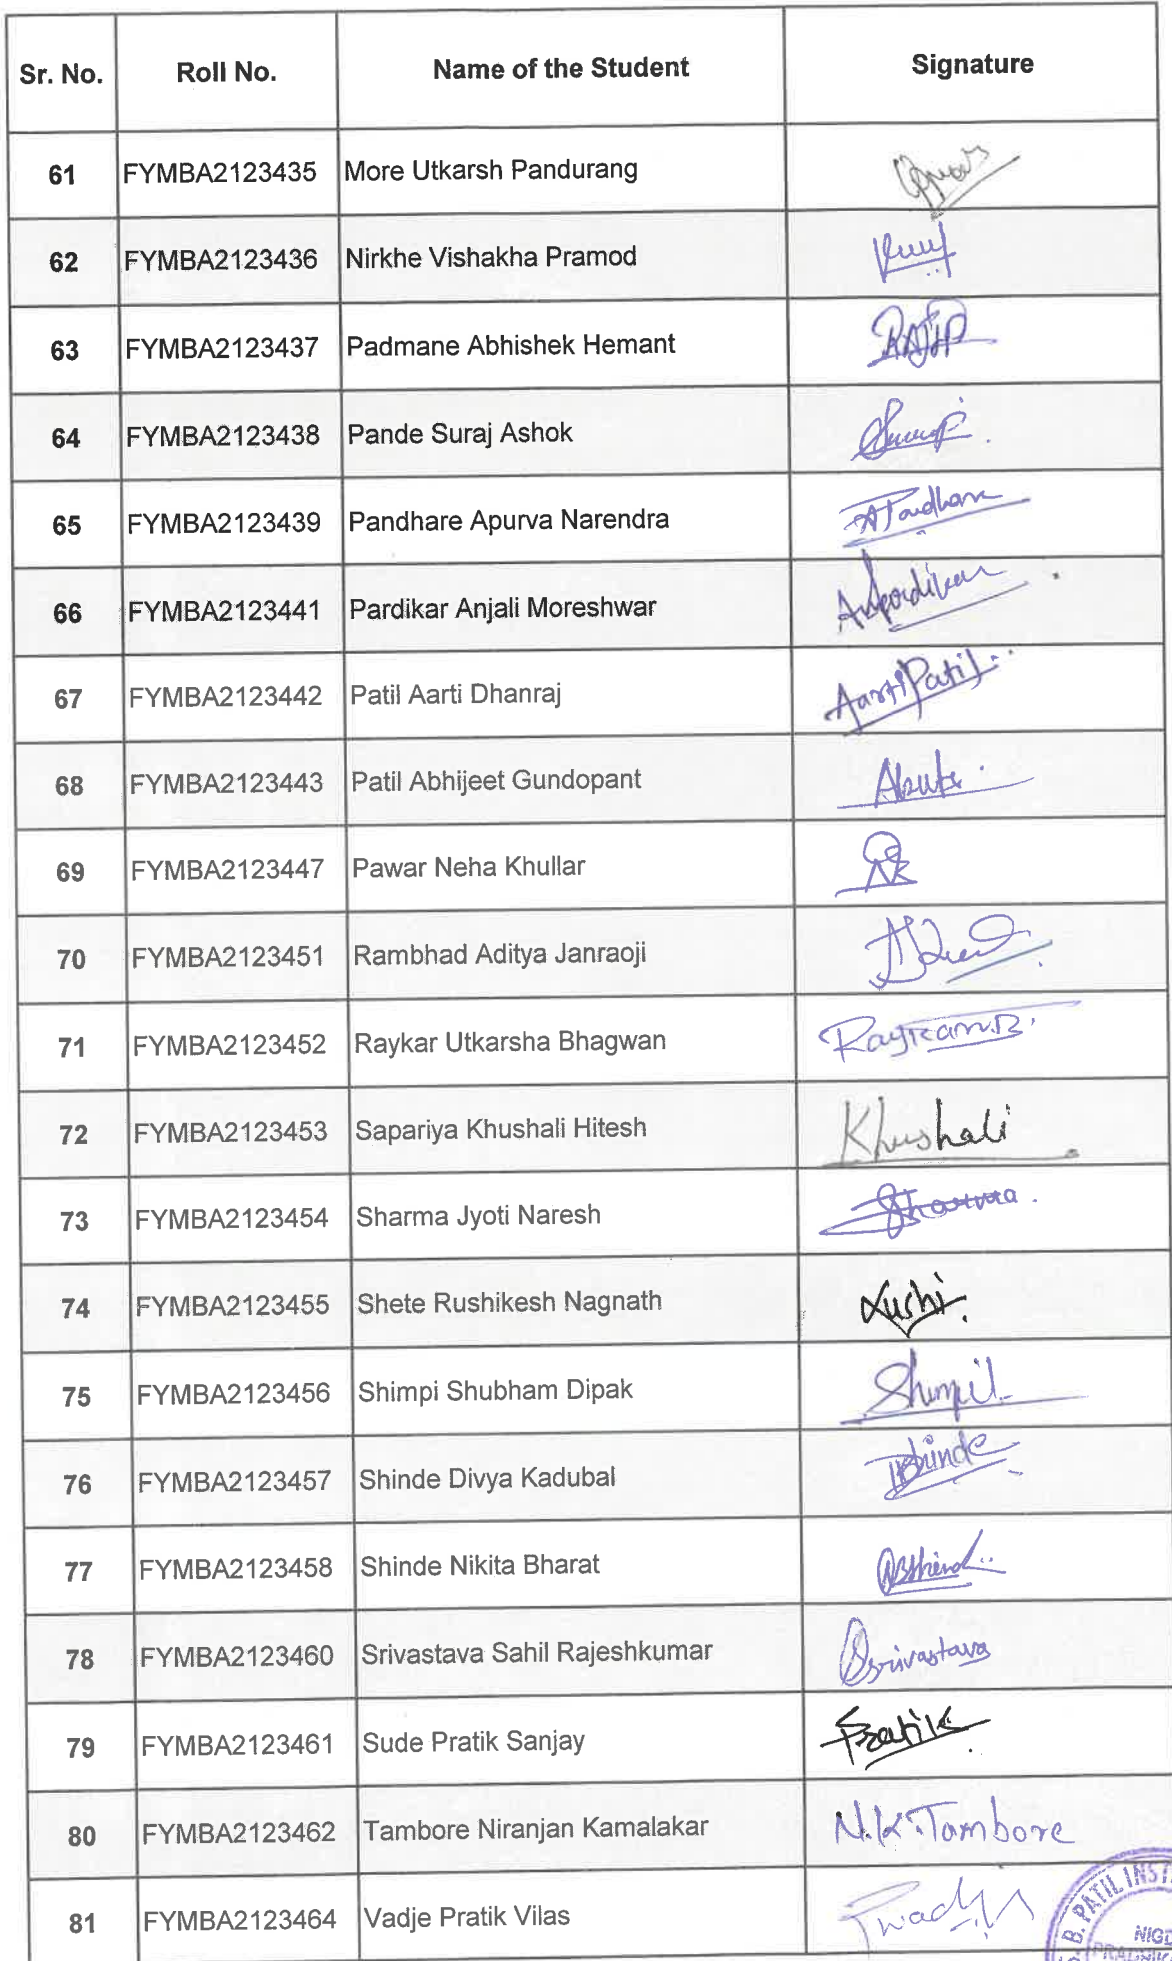 Sr. No. Roll No. Name of the Student Signature
61 FYMBA2123435 More Utkarsh Pandurang
62 FYMBA2123436 Nirkhe Vishakha Pramod
63 FYMBA2123437 Padmane Abhishek Hemant
64 FYMBA2123438 Pande Suraj Ashok
65 FYMBA2123439 Pandhare Apurva Narendra
66 FYMBA2123441 Pardikar Anjali Moreshwar
67 FYMBA2123442 Patil Aarti Dhanraj Aarti Patil
68 FYMBA2123443 Patil Abhijeet Gundopant
69 FYMBA2123447 Pawar Neha Khullar
70 FYMBA2123451 Rambhad Aditya Janraoji
71 FYMBA2123452 Raykar Utkarsha Bhagwan
72 FYMBA2123453 Sapariya Khushali Hitesh Khushali
73 FYMBA2123454 Sharma Jyoti Naresh
74 FYMBA2123455 Shete Rushikesh Nagnath
75 FYMBA2123456 Shimpi Shubham Dipak
76 FYMBA2123457 Shinde Divya Kadubal
77 FYMBA2123458 Shinde Nikita Bharat
78 FYMBA2123460 Srivastava Sahil Rajeshkumar Srivastava
79 FYMBA2123461 Sude Pratik Sanjay Pratik
80 FYMBA2123462 Tambore Niranjan Kamalakar N.K.Tambore
81 FYMBA2123464 Vadje Pratik Vilas
B. PATIL INST
NIGD